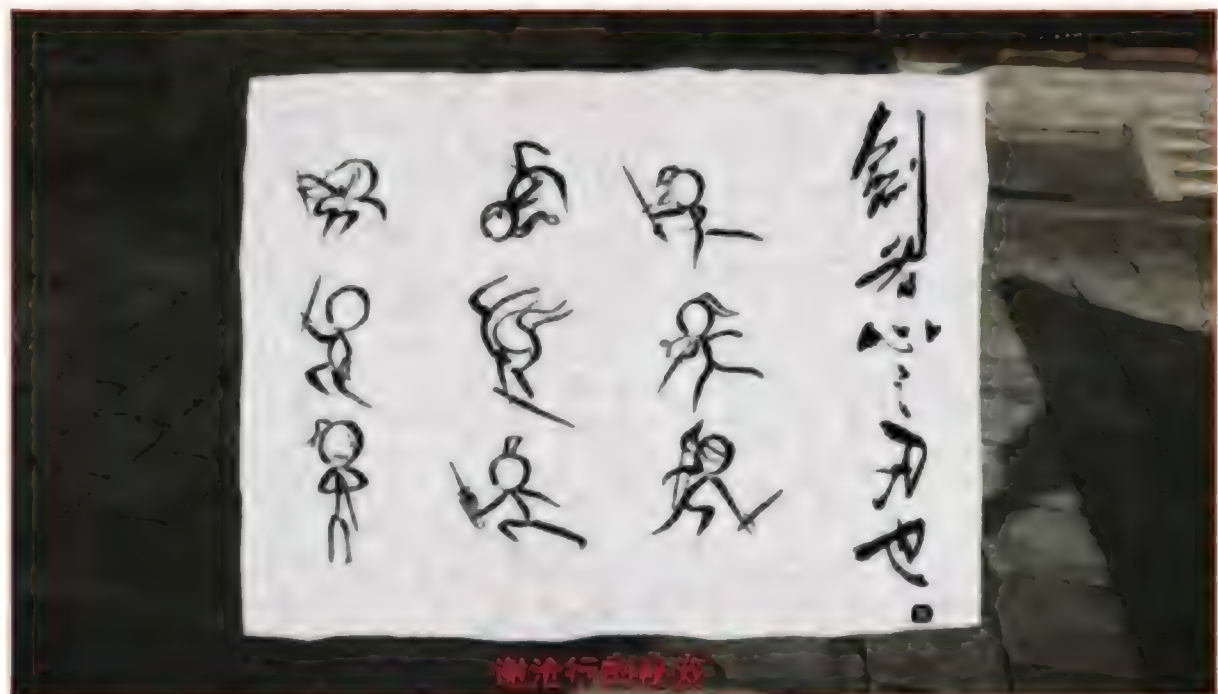 剑者心之刃也
谢沧行的